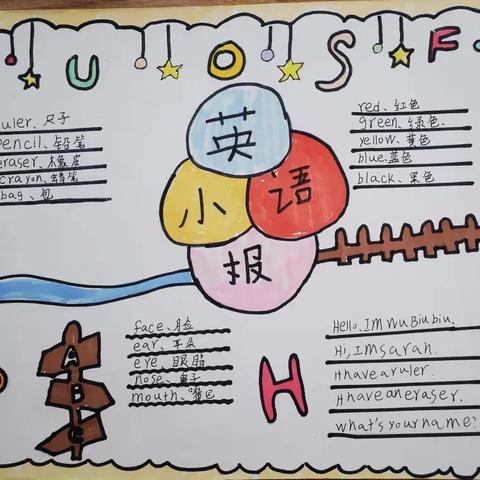 U O S F
uler、尺子
pencil、铅笔
eraser、橡皮
crayon、蜡笔
bag、包
英
小 语
报
red、红色
green、绿色、
yellow、黄色
blue、蓝色
black、黑色
A
B
C
face、脸
ear、耳朵
eye、眼睛
nose、鼻子
mouth、嘴巴
H
Hello、I'M Wu Biu biu.
Hi, I'M sarah.
I have a ruler.
I have an eraser.
what's your name?